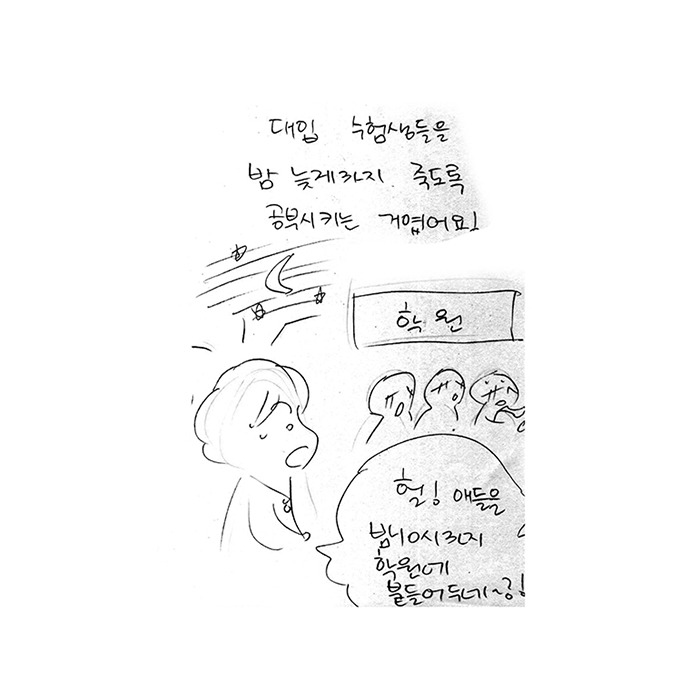 대입 수험생들을
밤 늦게까지 죽도록
공부시키는 거였어요!
학원
헐; 애들을
밤10시까지
학원에
붙들어두네~;;